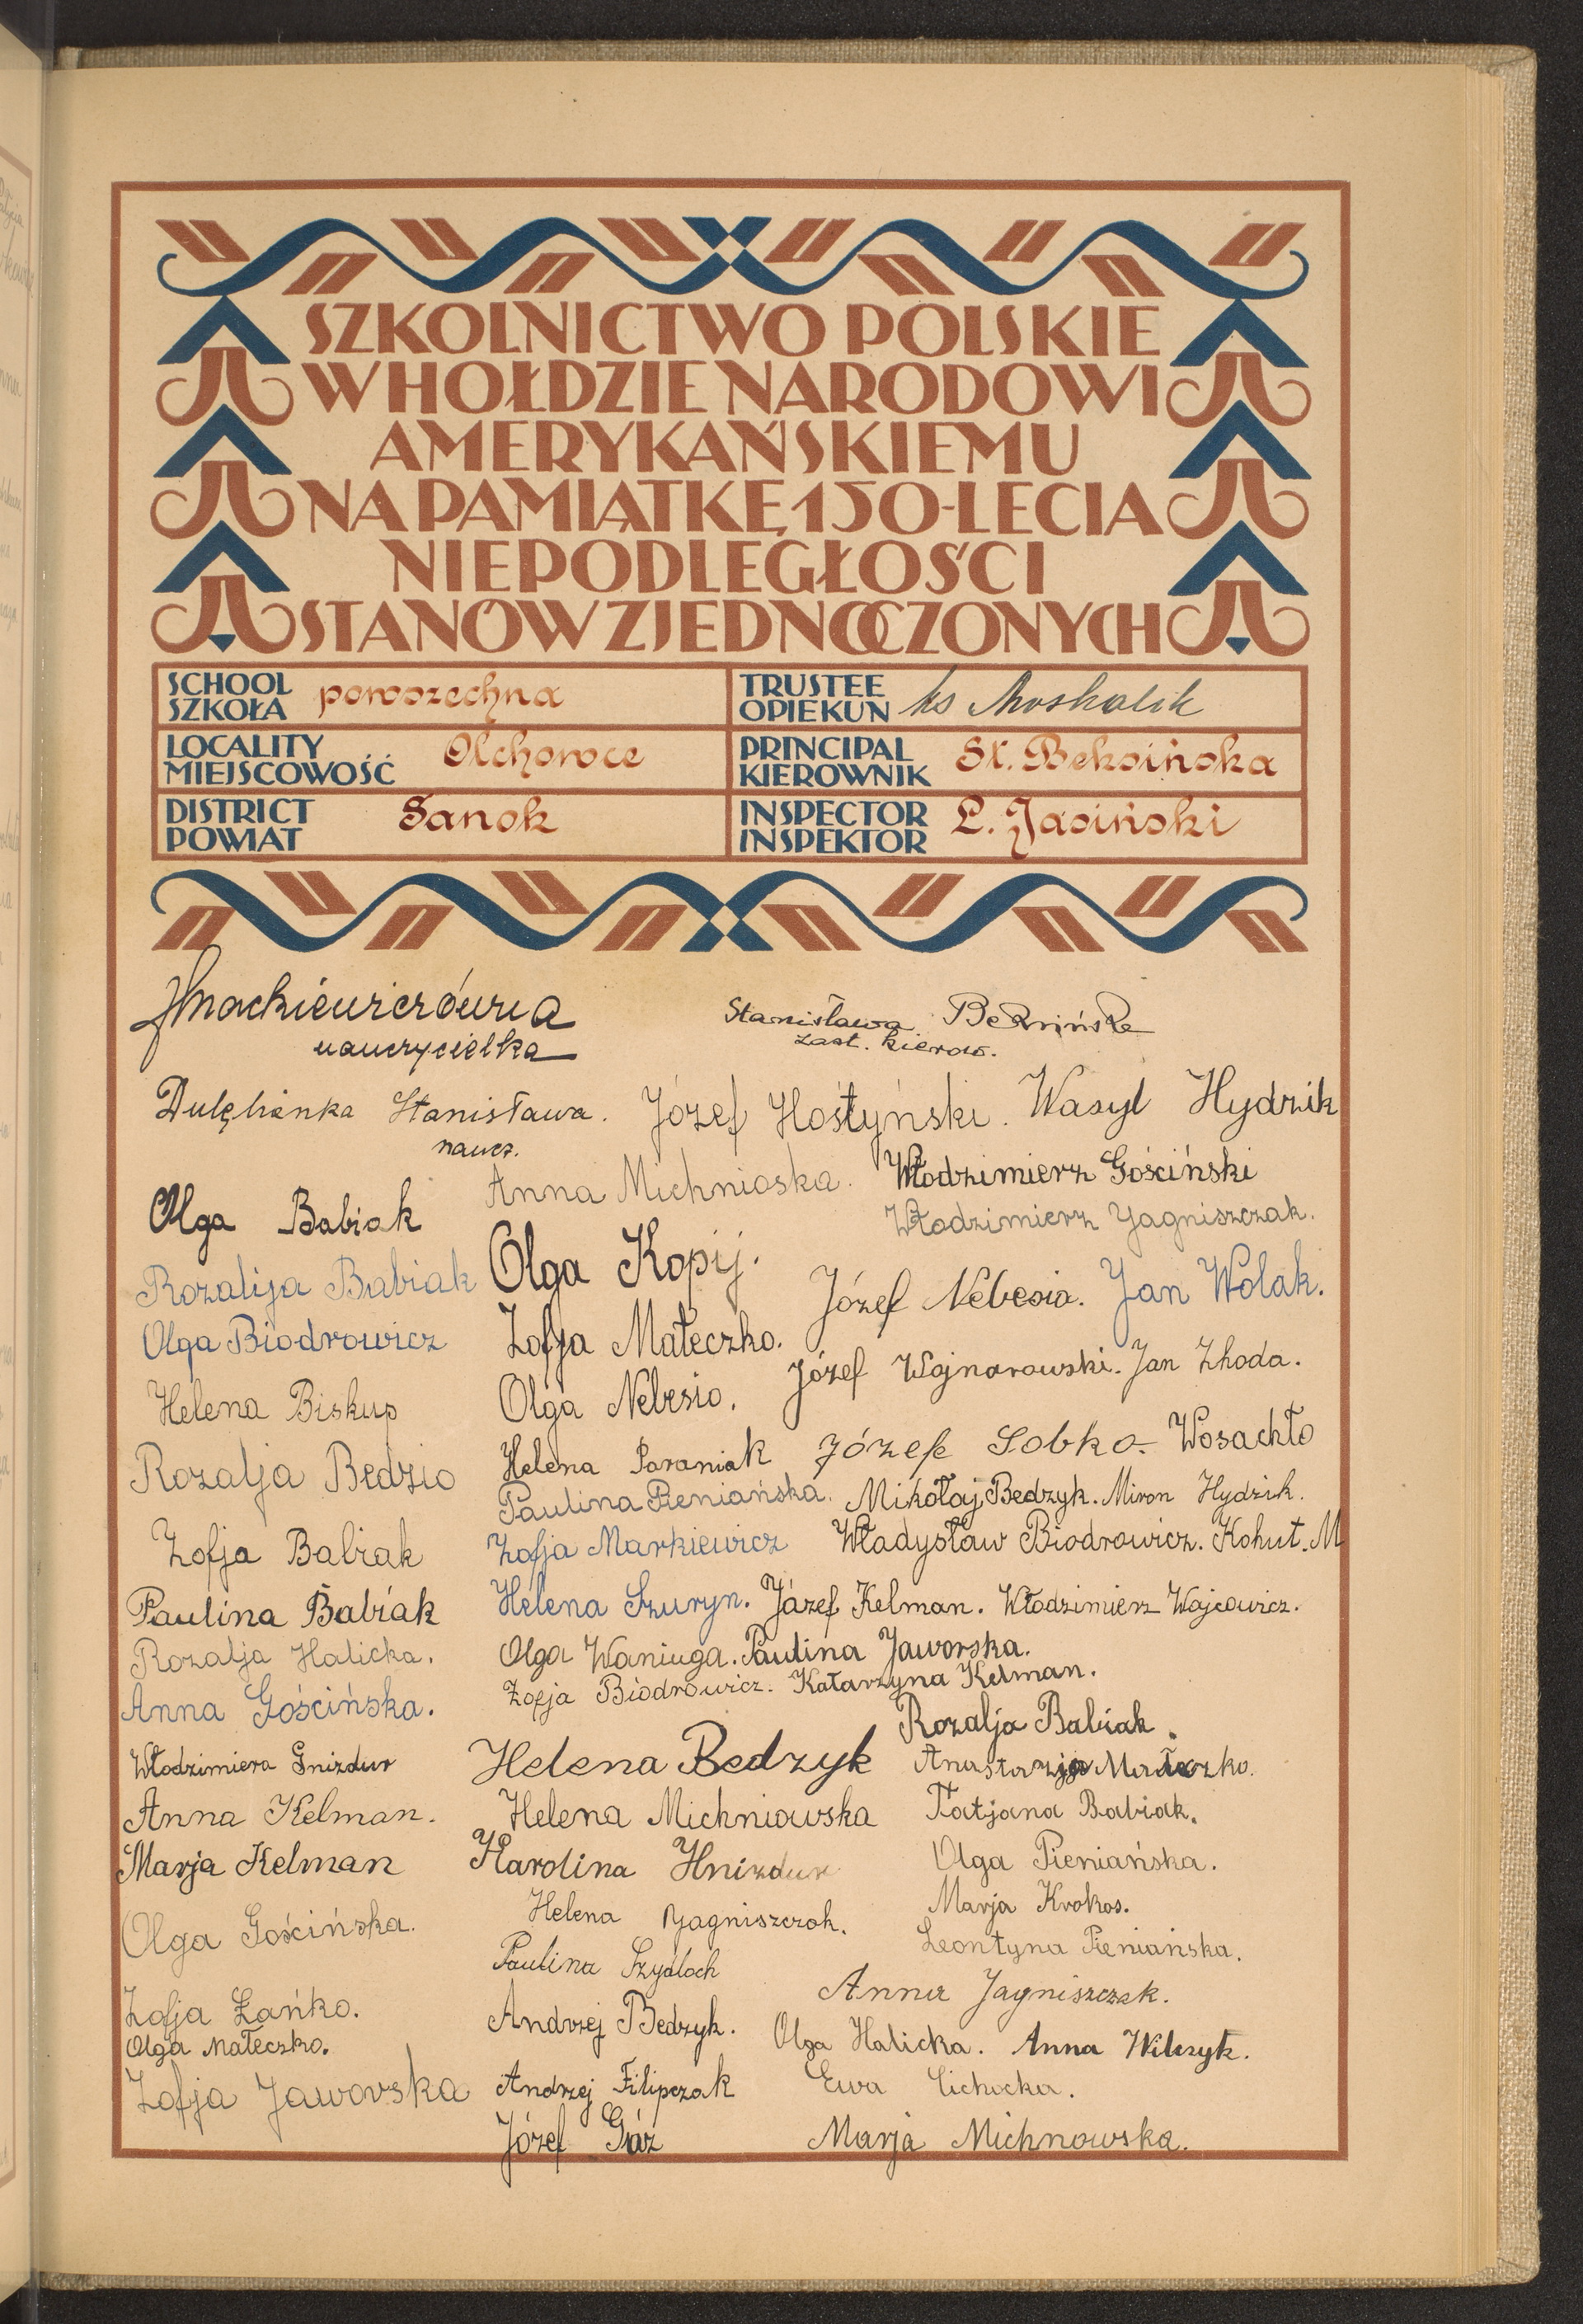 SZKOLNICTWO POLSKIE
W HOŁDZIE NARODOWI
AMERYKAŃSKIEMU
NA PAMIĄTKĘ 150-LECIA
NIEPODLEGŁOŚCI
STANÓW ZJEDNOCZONYCH
SCHOOL
SZKOŁA powszechna
TRUSTEE
OPIEKUN ks Moskalik
LOCALITY
MIEJSCOWOŚĆ Olchowce
PRINCIPAL
KIEROWNIK St. Beksińska
DISTRICT
POWIAT Sanok
INSPECTOR
INSPEKTOR L. Jasiński
nauczycielka
Stanisława Beksińska
zast. kierow.
Dulębianka Stanisława.
naucz.
Józef Hostyński. Wasyl Hydzik
Olga Babiak
Rozalija Babiak
Olga Biodrowicz
Helena Biskup
Rozalja Bedzio
Zofja Babiak
Paulina Babiak
Rozalja Halicka.
Anna Gościńska.
Włodzimiera Gnizdur
Anna Kelman.
Marja Kelman
Olga Gościńska.
Zofja Łańko.
Olga Małeczko.
Zofja Jaworska
Anna Michnioska. Włodzimierz Gościński
Włodzimierz Jagniszczak.
Olga Kopij.
Józef Nebesio. Jan Wolak.
Zofja Małeczko.
Józef Wojnarowski. Jan Zhoda.
Olga Nebesio.
Helena Paraniak Józefe Sobko. Wosachło
Paulina Pieniańska. Mikołaj Bedzyk. Miron Hydzik.
Zofja Markiewicz Władysław Biodrowicz. Kohut. M
Helena Szuryn. Józef Kelman. Włodzimierz Wojcowicz.
Olga Waniuga. Paulina Jaworska.
Zofja Biodrowicz. Katarzyna Kelman.
Rozalja Babiak.
Helena Bedzyk Anastazja Małeczko.
Helena Michniowska Tatjana Babiak.
Karolina Hnizdur Olga Pieniańska.
Helena Jagniszczak. Marja Krokos.
Paulina Szydłoch Leontyna Pieniańska.
Anna Jagniszczak.
Andrzej Bedzyk. Olga Halicka. Anna Wilczyk.
Andrzej Filipczak Ewa Cichocka.
Józef Gáz Marja Michnowska.